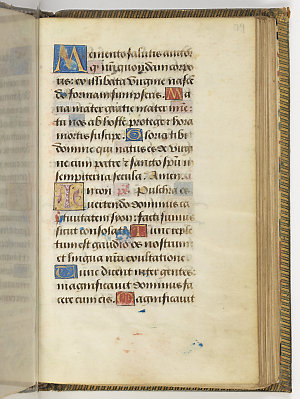 Memento salutis auctor
q nr̃i quondam corpo
ris: ex illibata virgine nascē
do formam sumpseris. Ma
ria mater gratie mater mie
tu nos ab hoste protege t hora
mortis suscipe. Gloria tibi
domine qui natus es de virgi
ne cum patre t sancto spũ in
sempiterna secula. Amen. a
In con ps Pulchra es
uertendo dominus ca
ptiuitatem syon: facti sumus
sicut consolati. Tunc reple
tum est gaudio os nostrum
et lingua nr̃a exultatione.
Tunc dicent inter gentes:
magnificauit dominus fa
cere cum eis. Magnificauit